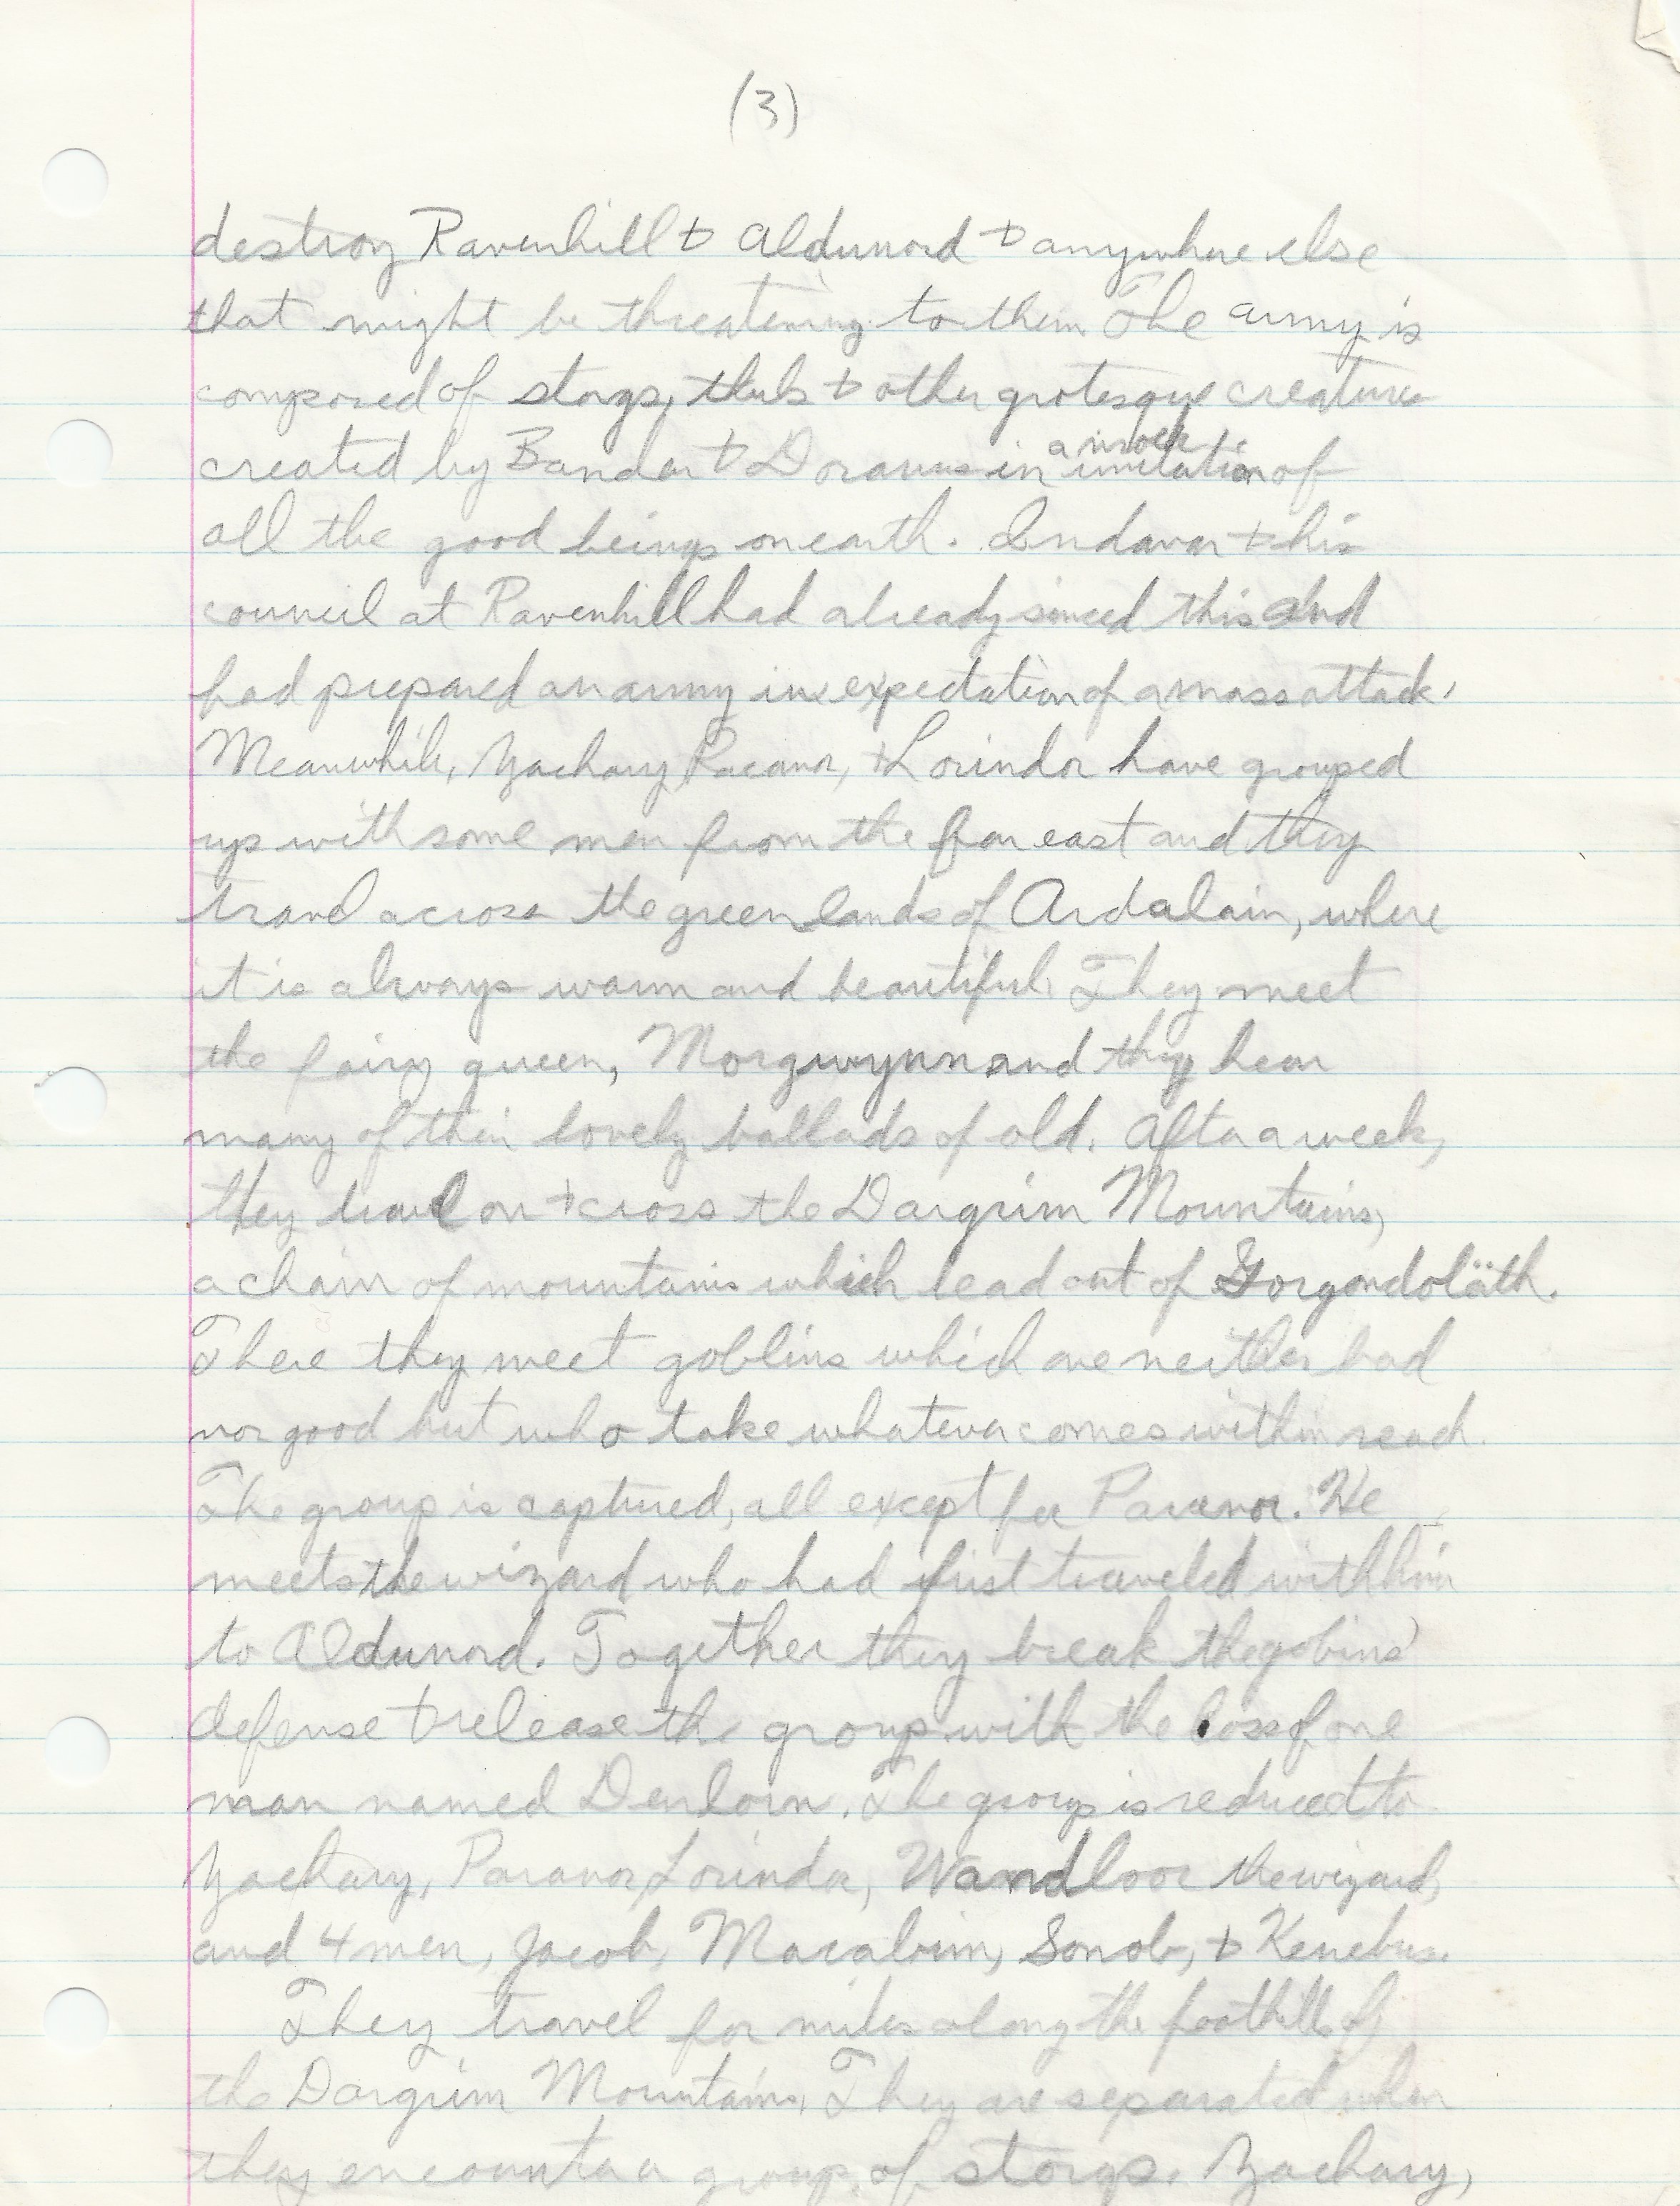 (3)
destroy Ravenhill & Aldunord & anywhere else
that might be threatening to them The army is
composed of storgs, thubs & other grotesque creatures
created by Bandor & Doranus in a mock imitation of
all the good beings on earth. Indavar & his
council at Ravenhill had already sinced this and
had prepared an army in expectation of a mass attack.
Meanwhile, Zachary, Paranor, & Lorindor have grouped
up with some men from the far east and they
travel across the green lands of Ardalain, where
it is always warm and beautiful. They meet
the fairy queen, Morgwynn and they hear
many of their lovely ballads of old. After a week,
they travel on & cross the Dargrim Mountains,
a chain of mountains which lead out of Gorgondoläth.
There they meet goblins which are neither bad
nor good but who take whatever comes within reach.
The group is captured, all except for Paranor. He
meets the wizard who had first traveled with him
to Aldunord. Together they break the gobins'
defense & release the group with the loss of one
man named Denlorn. The group is reduced to
Zachary, Paranor, Lorindor, Wandloor the wizard,
and 4 men, Jacob, Maralvim, Sonob, & Kenebus.
They travel for miles along the foothills of
the Dargrim Mountains. They are separated when
they encounter a group of storgs. Zachary,